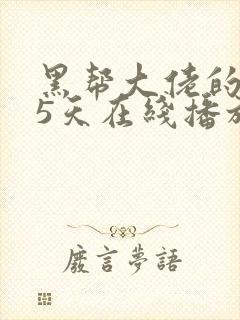 黑帮大佬的
5天在线播放
廢言夢語